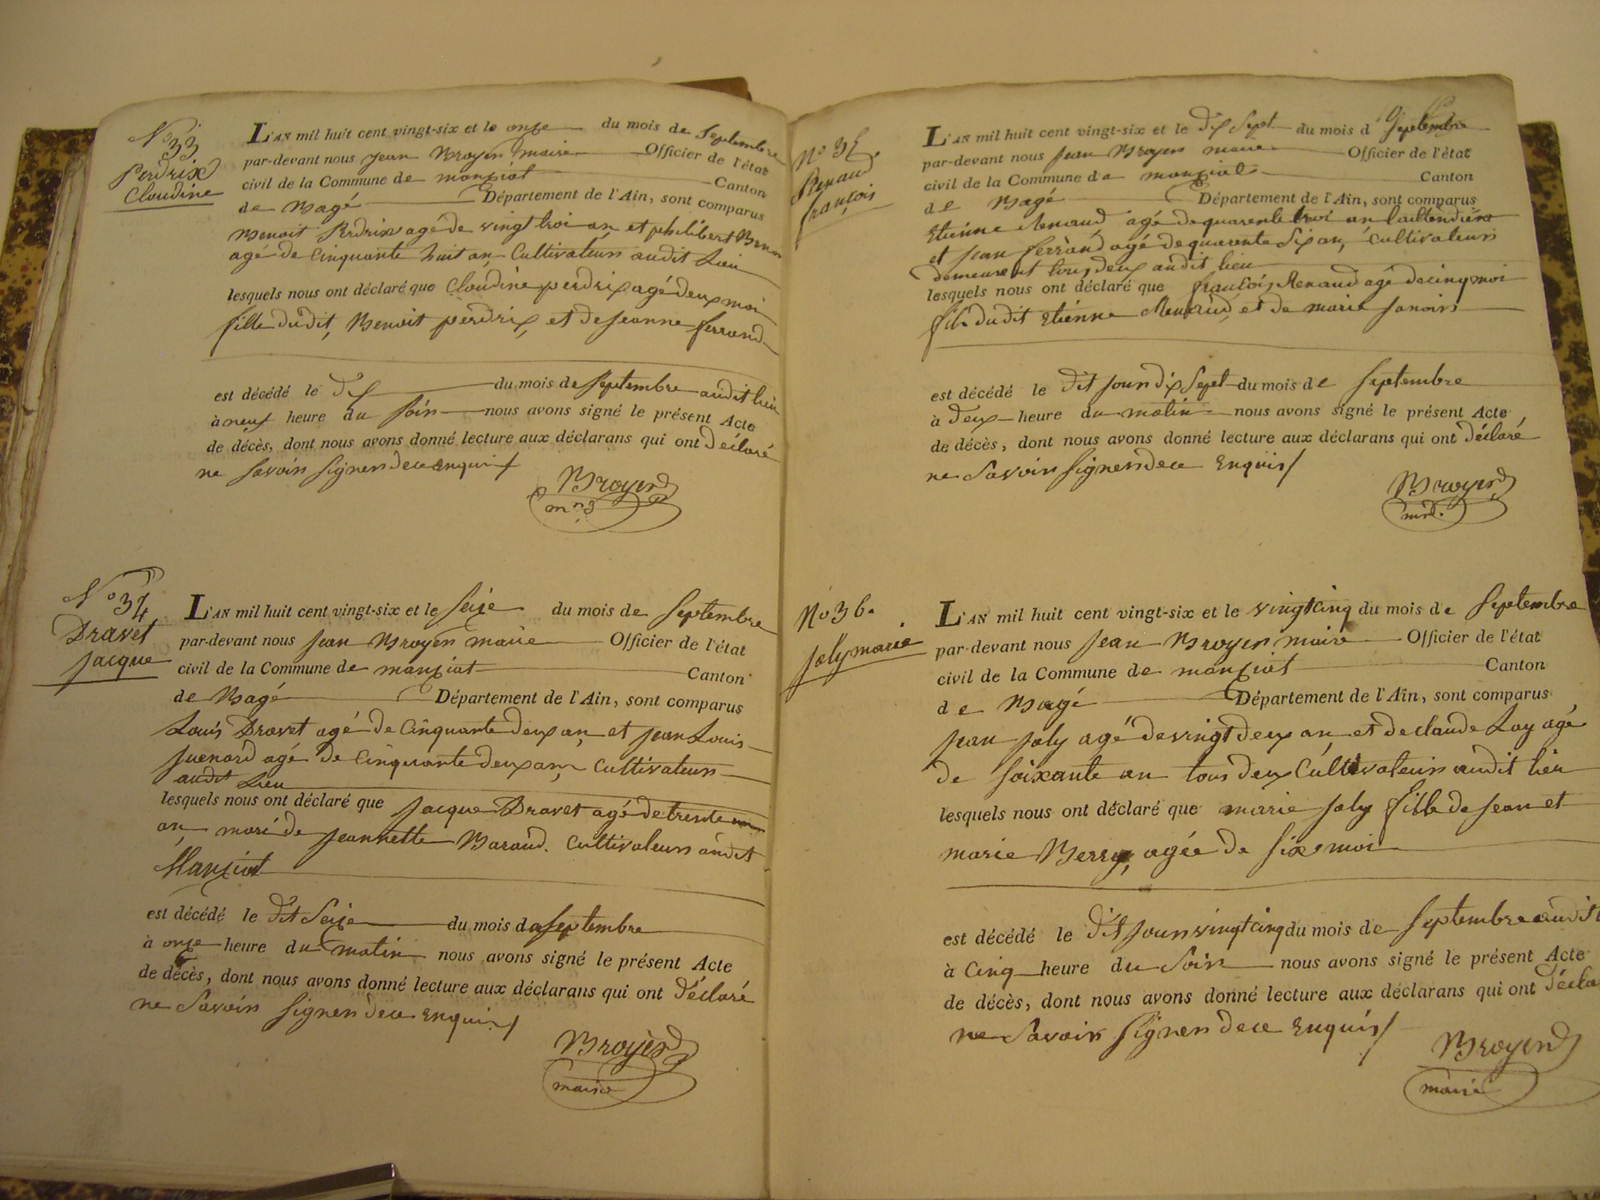 N° 33
Perdrix
Claudine
L'AN mil huit cent vingt-six et le onze du mois de Septembre
par-devant nous jean Broyer maire Officier de l'état
civil de la Commune de manziat Canton
de Bagé Département de l'Ain, sont comparus
Benoit Perdrix agé de vingt troi an et philibert
agé de Cinquante huit an Cultivateurs audit Lieu
lesquels nous ont déclaré que Claudine perdrix agé deux moi
fille dudit Benoit perdrix et de jeanne ferrand
est décédé le dix du mois de Septembre audit lieu
à neuf heure du Soir nous avons signé le présent Acte
de décès, dont nous avons donné lecture aux déclarans qui ont déclaré
ne Savoir Signer de ce enquis
Broyer
N° 34
Dravet
jacque
L'AN mil huit cent vingt-six et le Seize du mois de Septembre
par-devant nous jean Broyer maire Officier de l'état
civil de la Commune de manziat Canton
de Bagé Département de l'Ain, sont comparus
Louis Dravet agé de Cinquante deux an et jean Louis
juenard agé de Cinquante deux an Cultivateurs
audit Lieu
lesquels nous ont déclaré que jacque Dravet agé de trente
an marié de jeannette Baraud. Cultivateur audit
Manziat
est décédé le dit Seize du mois de Septembre
à onze heure du matin nous avons signé le présent Acte
de décès, dont nous avons donné lecture aux déclarans qui ont déclaré
ne Savoir Signer de ce enquis
Broyer
maire
N° 35.
Renaud
françois
L'AN mil huit cent vingt-six et le dix Sept du mois d Septembre
par-devant nous jean Broyer maire Officier de l'état
civil de la Commune de manziat Canton
de Bagé Département de l'Ain, sont comparus
Etienne Renaud agé de quarente troi an
et jean ferrand agé de quarente Six an, Cultivateurs
demeurent tous deux audit lieu
lesquels nous ont déclaré que françois Renaud agé de cinq moi
fils dudit Etienne Renaud et de marie
est décédé le dit jour dix Sept du mois de Septembre
à deux heure du matin nous avons signé le présent Acte
de décès, dont nous avons donné lecture aux déclarans qui ont déclaré
ne Savoir Signer de ce Enquis
Broyer
N° 36.
joly marie
L'AN mil huit cent vingt-six et le vingt cinq du mois de Septembre
par-devant nous jean Broyer maire Officier de l'état
civil de la Commune de manziat Canton
de Bagé Département de l'Ain, sont comparus
jean joly agé de vingt deux an et de claude Loy agé
de Soixante an tous deux Cultivateurs audit lieu
lesquels nous ont déclaré que marie joly fille de jean et
marie Berry, agée de Six moi
est décédé le dit jour vingt cinq du mois de Septembre audit
à Cinq heure du Soir nous avons signé le présent Acte
de décès, dont nous avons donné lecture aux déclarans qui ont décla
ne Savoir Signer de ce Enquis
Broyer
maire